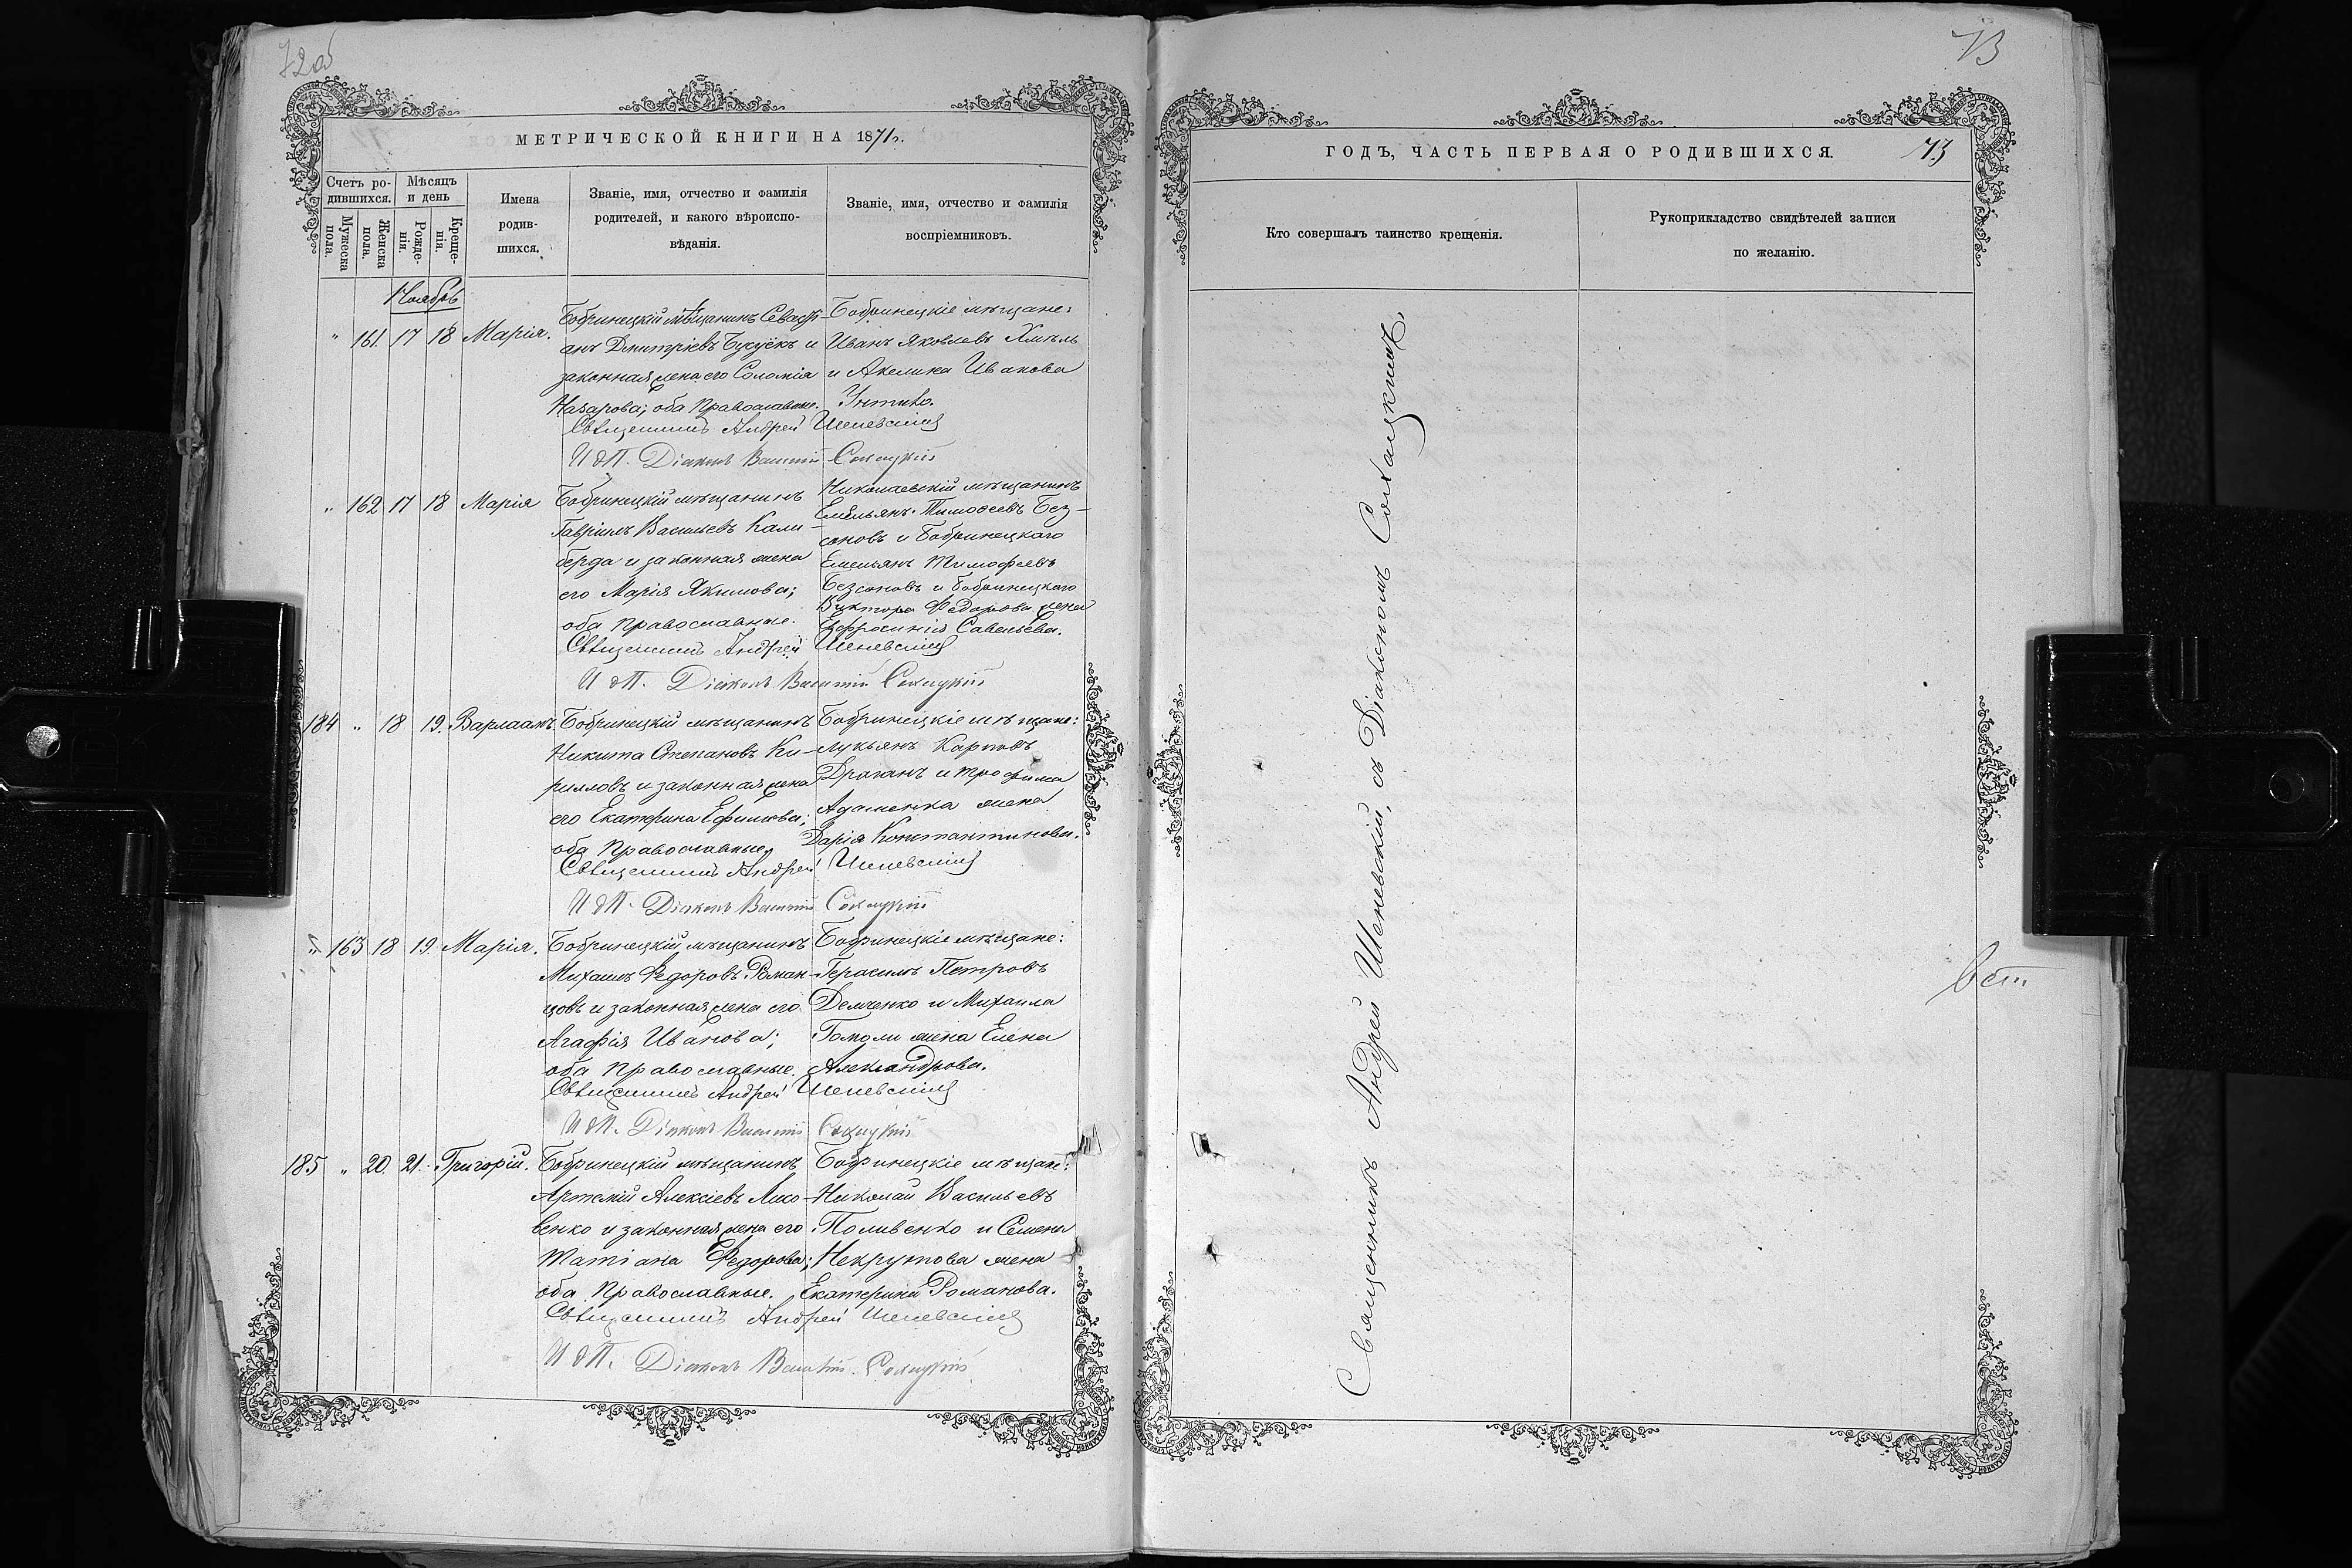 72об
МЕТРИЧЕСКОЙ КНИГИ НА 1871г.
Счетъ родившихся.
Мѣсяцъ и день
Мужеска пола.
Женска пола.
Рожденія.
Крещенія.
Имена
родив-
шихся.
Званіе, имя, отчество и фамилія
родителей, и какого вѣроиспо-
вѣданія.
Званіе, имя, отчество и фамилія
воспріемниковъ.
Ноябрь
" 161. 17 18 Марія.
Бобринецкій мѣщанинъ Севасті-
анъ Дмитріевъ и
законная жена его Соломія
Назарова; оба Православные.
Бобринецкіе мѣщане:
Иванъ Яковлевъ Хмѣль
и Акелина Иванова
Священникъ Андрей Шеневскій
И д П. Діаконъ Василій Сокацкій
" 162 17 18 Марія
Бобринецкій мѣщанинъ
Гавріилъ Васильевъ Кали-
берда и законная жена
его Марія Якимова;
оба Православные.
Николаевскій мѣщанинъ
Емельянъ Тимофеевъ Без-
соновъ и Бобринецкаго
Емельянъ Тимофеевъ
Безсоновъ и Бобринецкаго
Виктора Федорова жена
Ефросинія Савельева.
Священникъ Андрей Шеневскій
И д П. Діаконъ Василій Сокацкій
184 " 18 19. Варлаамъ.
Бобринецкій мѣщанинъ
Никита Степановъ Ки-
рилловъ и законная жена
его Екатерина Ефимова;
оба Православные.
Бобринецкіе мѣщане:
Лукьянъ Карповъ
Драганъ и Трофима
Адаменка жена
Дарія Константинова.
Священникъ Андрей Шеневскій
И д П. Діаконъ Василій Сокацкій
" 163 18 19. Марія.
Бобринецкій мѣщанинъ
Михаилъ Федоровъ Роман-
цовъ и законная жена его
Агафія Иванова;
оба Православные.
Бобринецкіе мѣщане:
Герасимъ Петровъ
Демченко и Михаила
Гомоли жена Елена
Александрова.
Священникъ Андрей Шеневскій
И д П. Діаконъ Василій Сокацкій
185 " 20 21. Григорій.
Бобринецкій мѣщанинъ
Артемій Алексіевъ
и законная жена его
Татіана Федорова;
оба Православные.
Бобринецкіе мѣщане:
Николай Васильевъ
Поливенко и Семена
Некрутова жена
Екатерина Романова.
Священникъ Андрей Шеневскій
И д П. Діаконъ Василій Сокацкій
73
ГОДЪ, ЧАСТЬ ПЕРВАЯ О РОДИВШИХСЯ.
73
Кто совершалъ таинство крещенія.
Рукоприкладство свидѣтелей записи
по желанію.
Священникъ Андрей Шеневскій, съ Діакономъ Сокацкимъ.